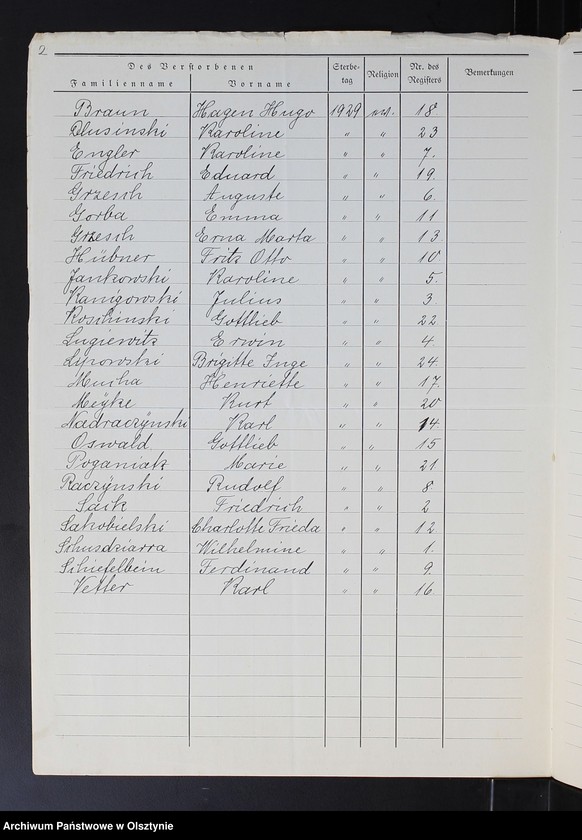 2
Des Verstorbenen Sterbetag Religion Nr. des Registers Bemerkungen
Familienname Vorname
Braun Hagen Hugo 1929 ev. 18
Olusinski Karoline " " 23
Engler Karoline " " 7.
Friedrich Eduard " " 19
Grzesch Auguste " " 6.
Gorba Emma " " 11
Grzesch Erna Marta " " 13
Hübner Fritz Otto " " 10
Jankowski Karoline " " 5.
Kanigowski Julius " " 3
Koschinski Gottlieb " " 22
Lugiewitz Erwin " " 4
Lipowski Brigitte Inge " " 24.
Mucha Henriette " " 17
Meyke Kurt " " 20
Nadraczynski Karl " " 14
Oswald Gottlieb " " 15
Poganiatz Marie " " 21
Raczynski Rudolf " " 8
Saik Friedrich " " 2
Sakobielski Charlotte Frieda " " 12
Schusdziarra Wilhelmine " " 1.
Schiefelbein Ferdinand " " 9
Vetter Karl " " 16
Archiwum Państwowe w Olsztynie